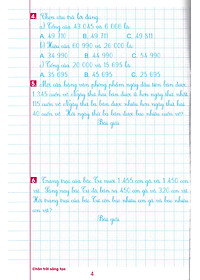 4. Chọn câu trả lời đúng.
a) Tổng của 43 045 và 6 066 là:
A. 49 110 B. 49 711 C. 49 111
b) Hiệu của 60 990 và 26 000 là:
A. 34 990 B. 44 990 C. 54 990
c) Tổng của 20 000 và 15 695 là:
A. 35 695 B. 45 695 C. 25 695
5. Một cửa hàng văn phòng phẩm ngày đầu tiên bán được
1 345 cuốn vở. Ngày thứ hai bán được ít hơn ngày thứ nhất
115 cuốn vở. Ngày thứ ba bán được nhiều hơn ngày thứ hai
40 cuốn vở. Hỏi ngày thứ ba bán được bao nhiêu cuốn vở?
Bài giải
6. Trang trại của bác Tư nuôi 1 455 con gà và 1 450 con
vịt. Hôm nay bác Tư đã bán 450 con gà và 320 con vịt.
Hỏi trang trại của bác Tư còn bao nhiêu con gà và bao nhiêu
con vịt?
Bài giải
Chân trời sáng tạo
4